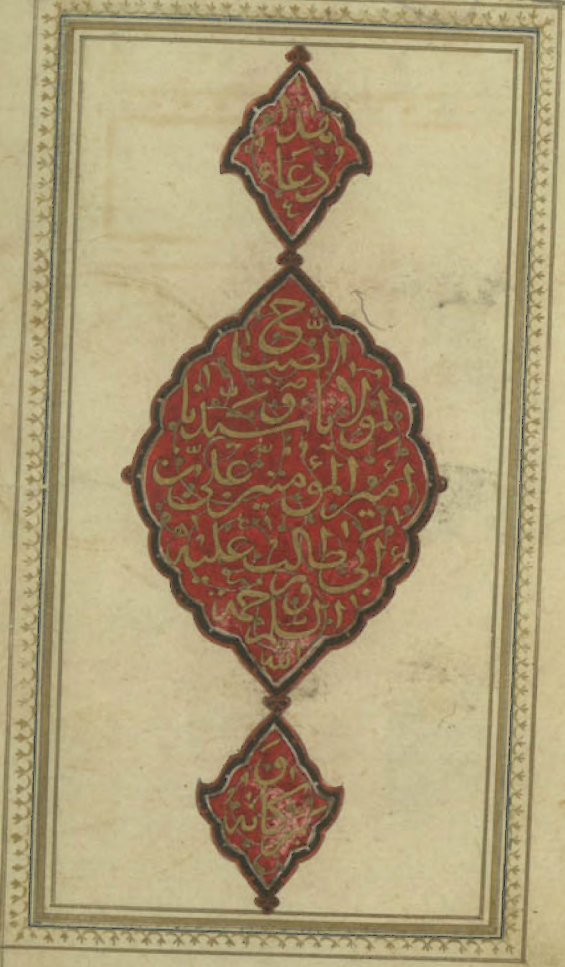 هذا
دعاء
الصباح
لمولانا و سيدنا
أمير المؤمنين علي بن
أبي طالب عليه
السلام و رحمة
الله
و
بركاته